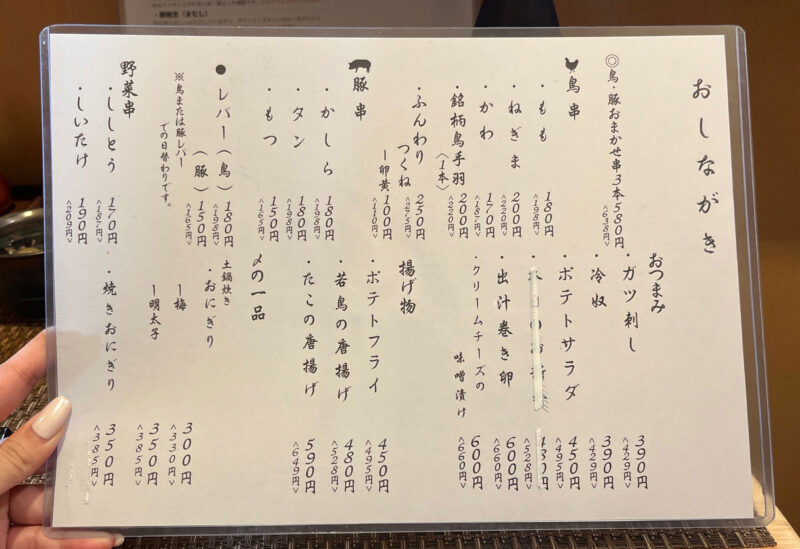 おしながき
◎鳥・豚おまかせ串3本580円
<638円>
鳥串
・もも 180円
<198円>
・ねぎま 200円
<220円>
・かわ 170円
<187円>
・銘柄鳥手羽 200円
<1本> <220円>
・ふんわり
つくね 250円
<275円>
ー卵黄 100円
<110円>
豚串
・かしら 180円
<198円>
・タン 180円
<198円>
・もつ 150円
<165円>
●レバー(鳥) 180円
<198円>
(豚) 150円
<165円>
※鳥または豚レバー
での日替わりです。
野菜串
・ししとう 170円
<187円>
・しいたけ 190円
<209円>
おつまみ
・ガツ刺し 390円
<429円>
・冷奴 390円
<429円>
・ポテトサラダ 450円
<495円>
日のお 480円
<528円>
・出汁巻き卵 600円
<660円>
・クリームチーズの
味噌漬け 600円
<660円>
揚げ物
・ポテトフライ 450円
<495円>
・若鳥の唐揚げ 480円
<528円>
・たこの唐揚げ 590円
<649円>
〆の一品
土鍋炊き
・おにぎり
ー梅 300円
<330円>
ー明太子 350円
<385円>
・焼きおにぎり 350円
<385円>